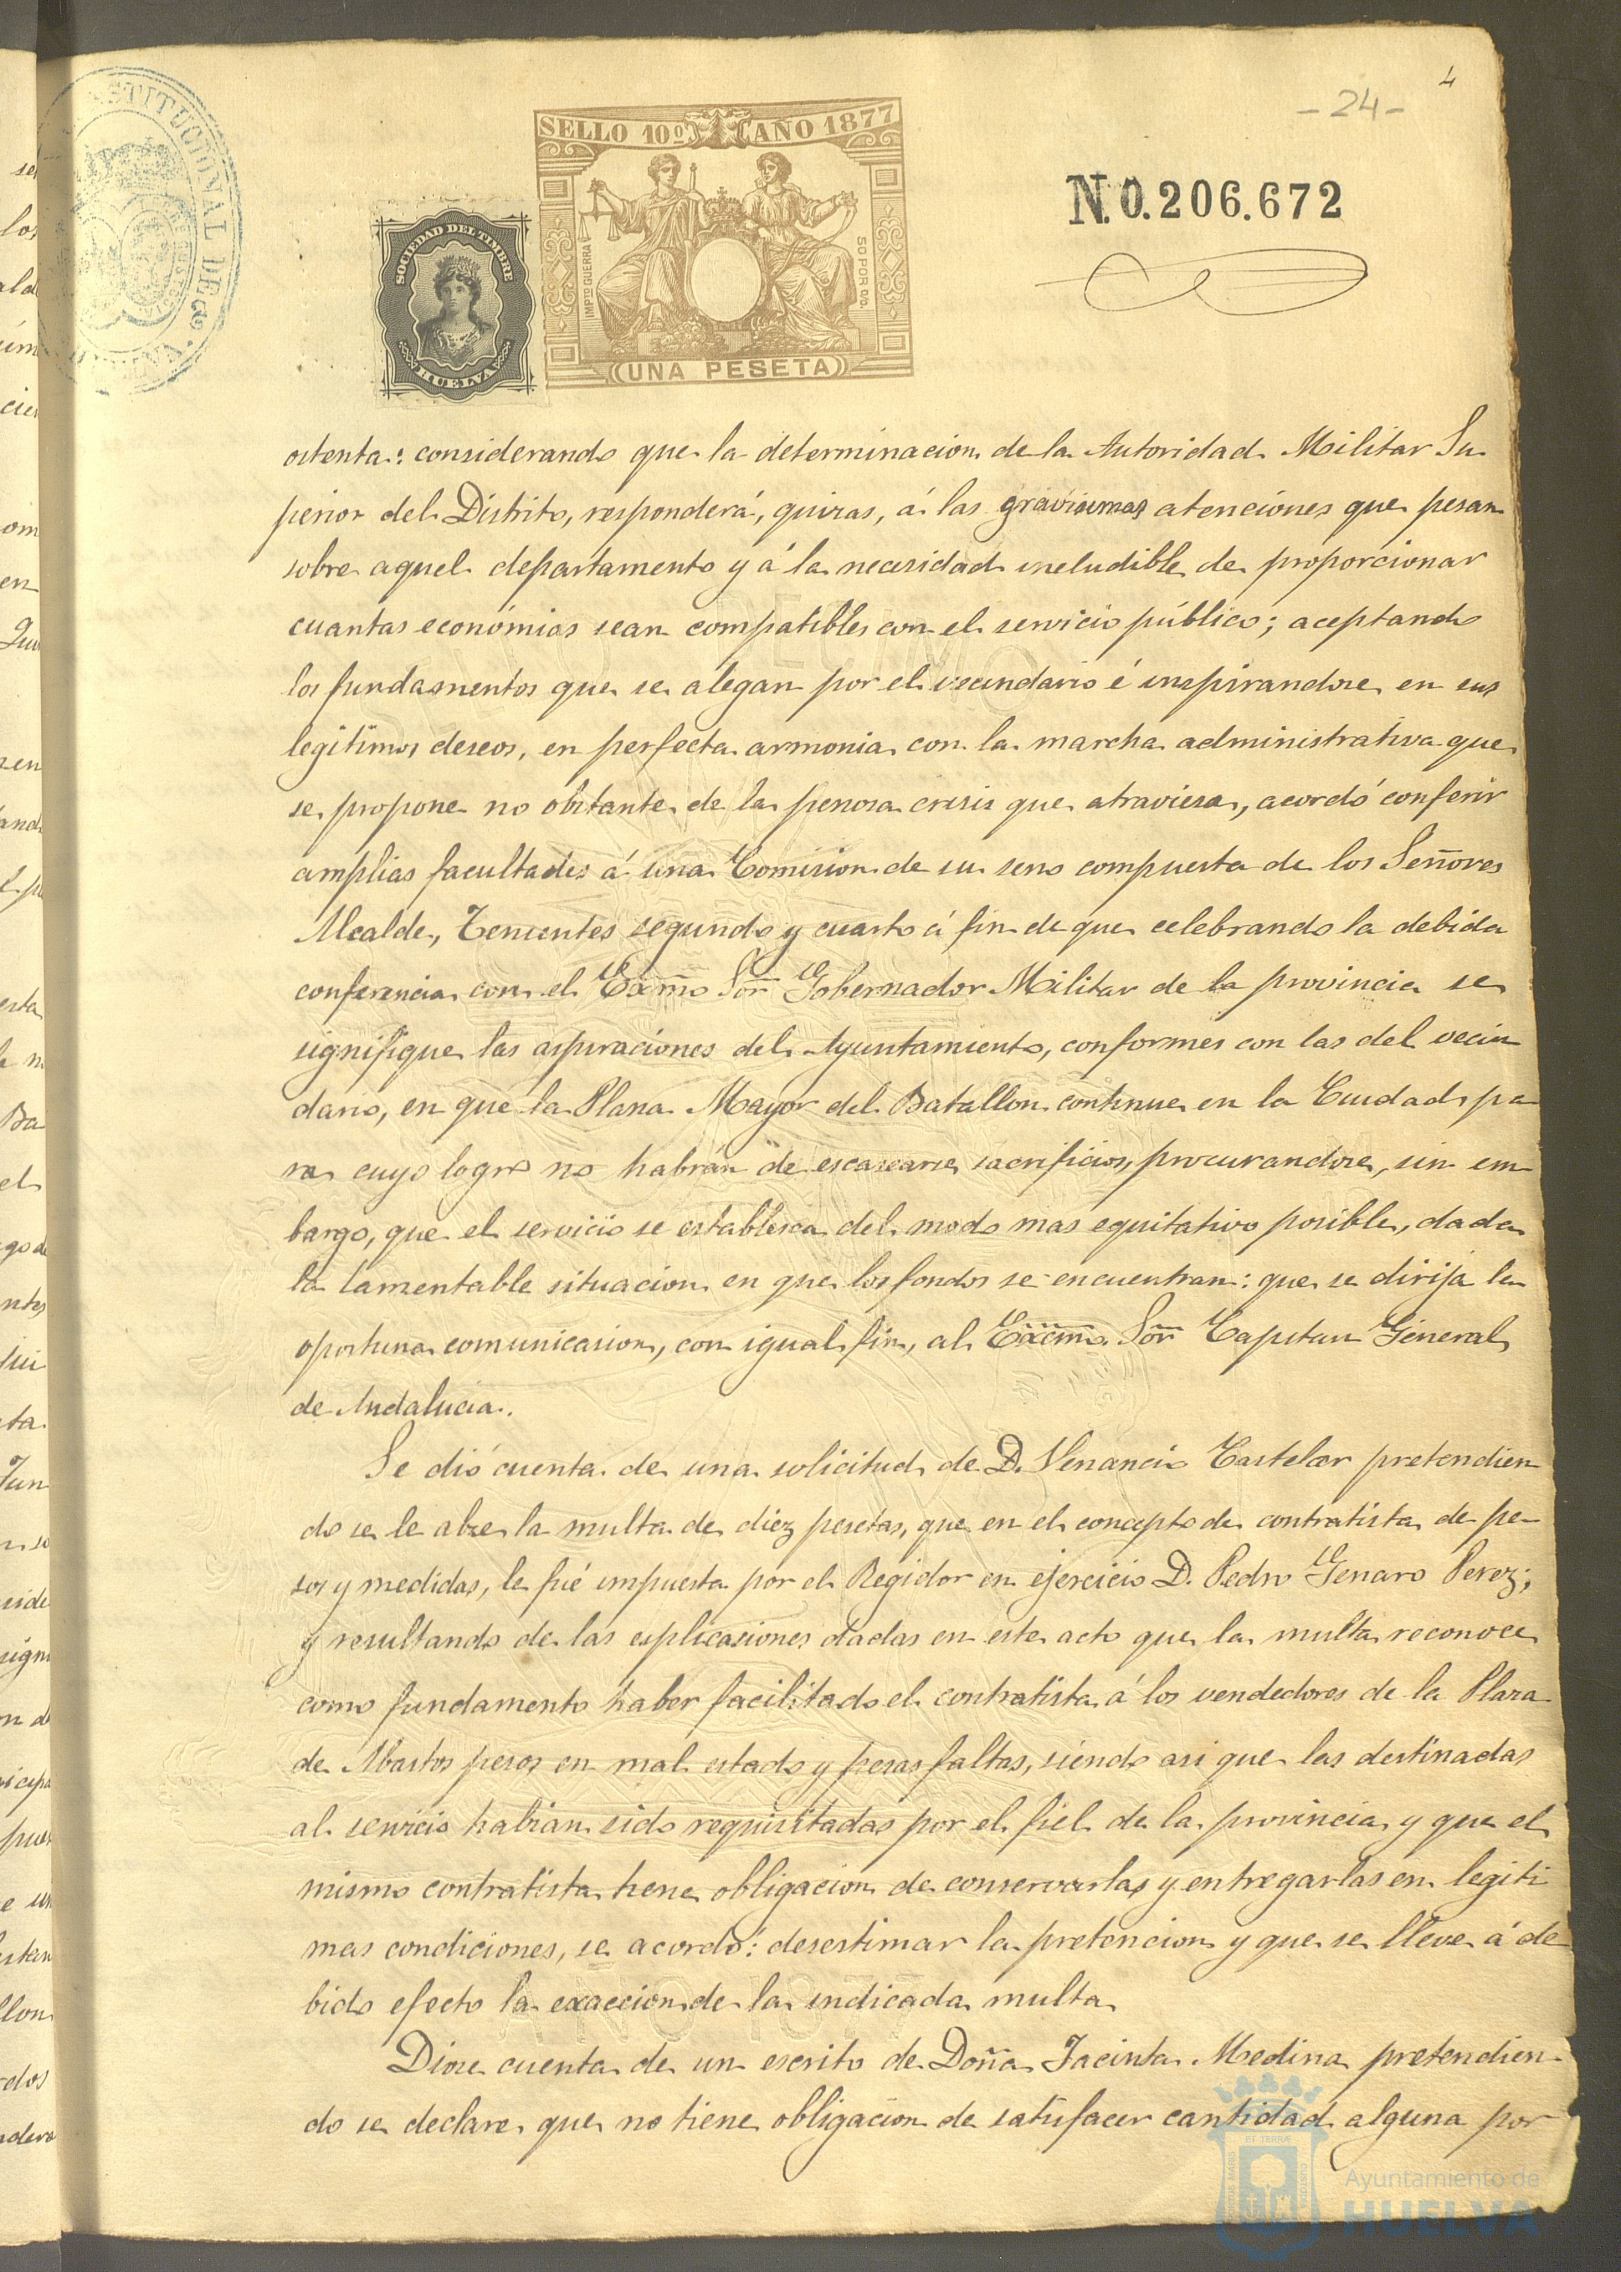 4
- 24 -
STITUCIONAL DE
SELLO 10º AÑO 1877
IMPTO GUERRA
50 POR 00.
UNA PESETA
SOCIEDAD DEL TIMBRE
HUELVA
N.0.206.672
ostenta: considerando que la determinacion de la Autoridad Militar Su
perior del Distrito, responderá, quizas, á las gravisimas atenciones que pesan
sobre aquel departamento y á la necesidad ineludible de proporcionar
cuantas económias sean compatibles con el servicio público; aceptando
los fundamentos que se alegan por el vecindario é inspirandose en sus
legitimos deseos, en perfecta armonia con la marcha administrativa que
se propone no obstante de la penosa crisis que atraviesa, acordó conferir
amplias facultades á una Comision de su seno compuesta de los Señores
Alcalde, Tenientes segundo y cuarto á fin de que celebrando la debida
conferencia con el Excmo Sor Gobernador Militar de la provincia se
signifique las aspiraciones del Ayuntamiento, conformes con las del vecin
dario, en que la Plana Mayor del Batallon continue en la Ciudad pa-
ra cuyo logro no habrán de escasearse sacrificios, procurandose, sin em-
bargo, que el servicio se establesca del modo mas equitativo posible, dada
la lamentable situacion en que los fondos se encuentran: que se dirija la
oportuna comunicacion, con igual fin, al Excmo. Sor Capitan General
de Andalucia.
Se dió cuenta de una solicitud de D. Venancio Castelar pretendien
do se le alze la multa de diez pesetas, que en el concepto de contratista de pe-
sos y medidas, le fué impuesta por el Regidor en ejercicio D. Pedro Genaro Perez;
y resultando de las esplicaciones dadas en este acto que la multa reconoce
como fundamento haber facilitado el contratista á los vendedores de la Plaza
de Abastos pesos en mal estado y pesas faltas, siendo asi que las destinadas
al servicio habian sido requisitadas por el fiel de la provincia y que el
mismo contratista tiene obligacion de conservarlas y entregarlas en legiti
mas condiciones, se acordó: desestimar la pretencion y que se lleve á de
bido efecto la exaccion de la indicada multa
Diose cuenta de un escrito de Doña Jacinta Medina pretendien-
do se declare que no tiene obligacion de satisfacer cantidad alguna por
Ayuntamiento de
HUELVA